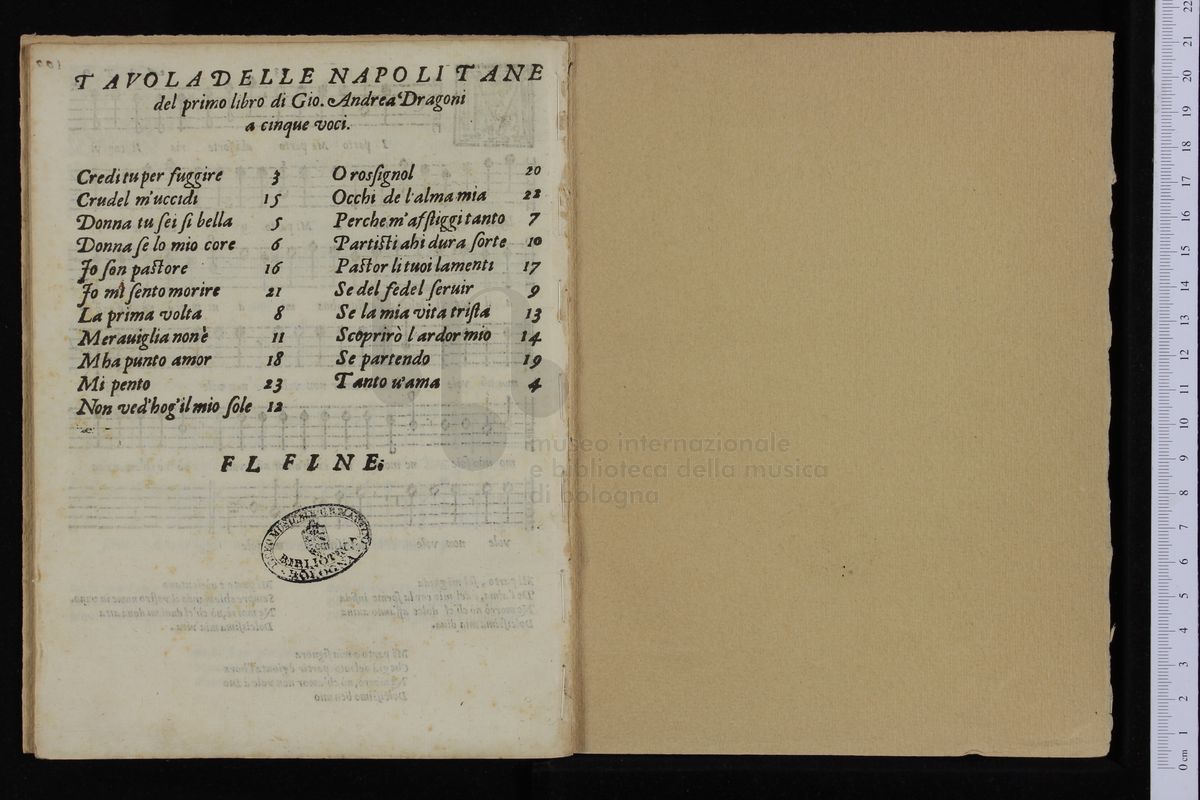 TAVOLA DELLE NAPOLITANE
del primo libro di Gio. Andrea Dragoni
a cinque voci.
Credi tu per fuggire 3
Crudel m'uccidi 15
Donna tu sei si bella 5
Donna se lo mio core 6
Io son pastore 16
Io mi sento morire 21
La prima volta 8
Merauiglia non è 11
M ha punto amor 18
Mi pento 23
Non ved'hog'il mio sole 12
O rossignol 20
Occhi de l'alma mia 22
Perche m'affliggi tanto 7
Partisti ahi dura sorte 10
Pastor li tuoi lamenti 17
Se del fedel seruir 9
Se la mia vita trista 13
Scoprirò l ardor mio 14
Se partendo 19
Tanto u'ama 4
FL FINE.
BIBLIOTECA
BOLOGNA
museo internazionale
e biblioteca della musica
di bologna
0 cm 1 2 3 4 5 6 7 8 9 10 11 12 13 14 15 16 17 18 19 20 21 22